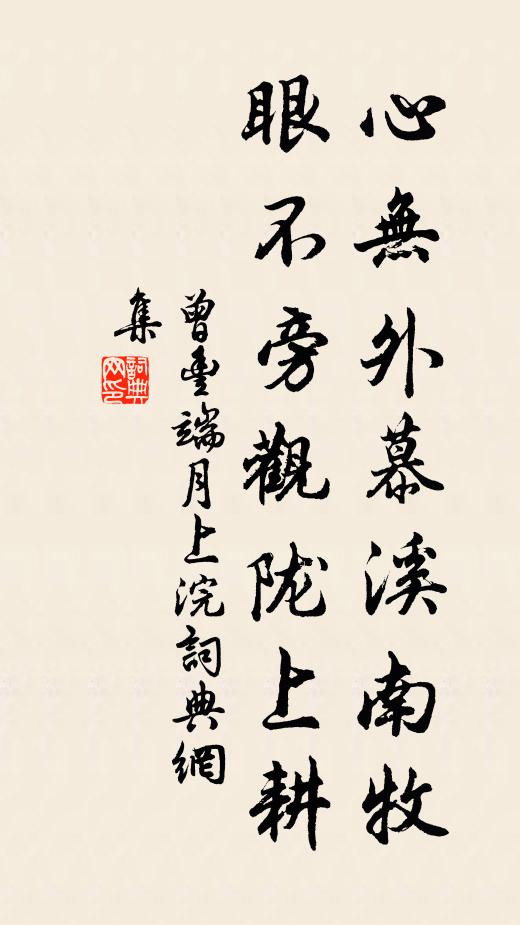 心無外慕溪南牧
眼不旁觀陇上耕
曾豐端月上浣詞典網
集
詞典网印